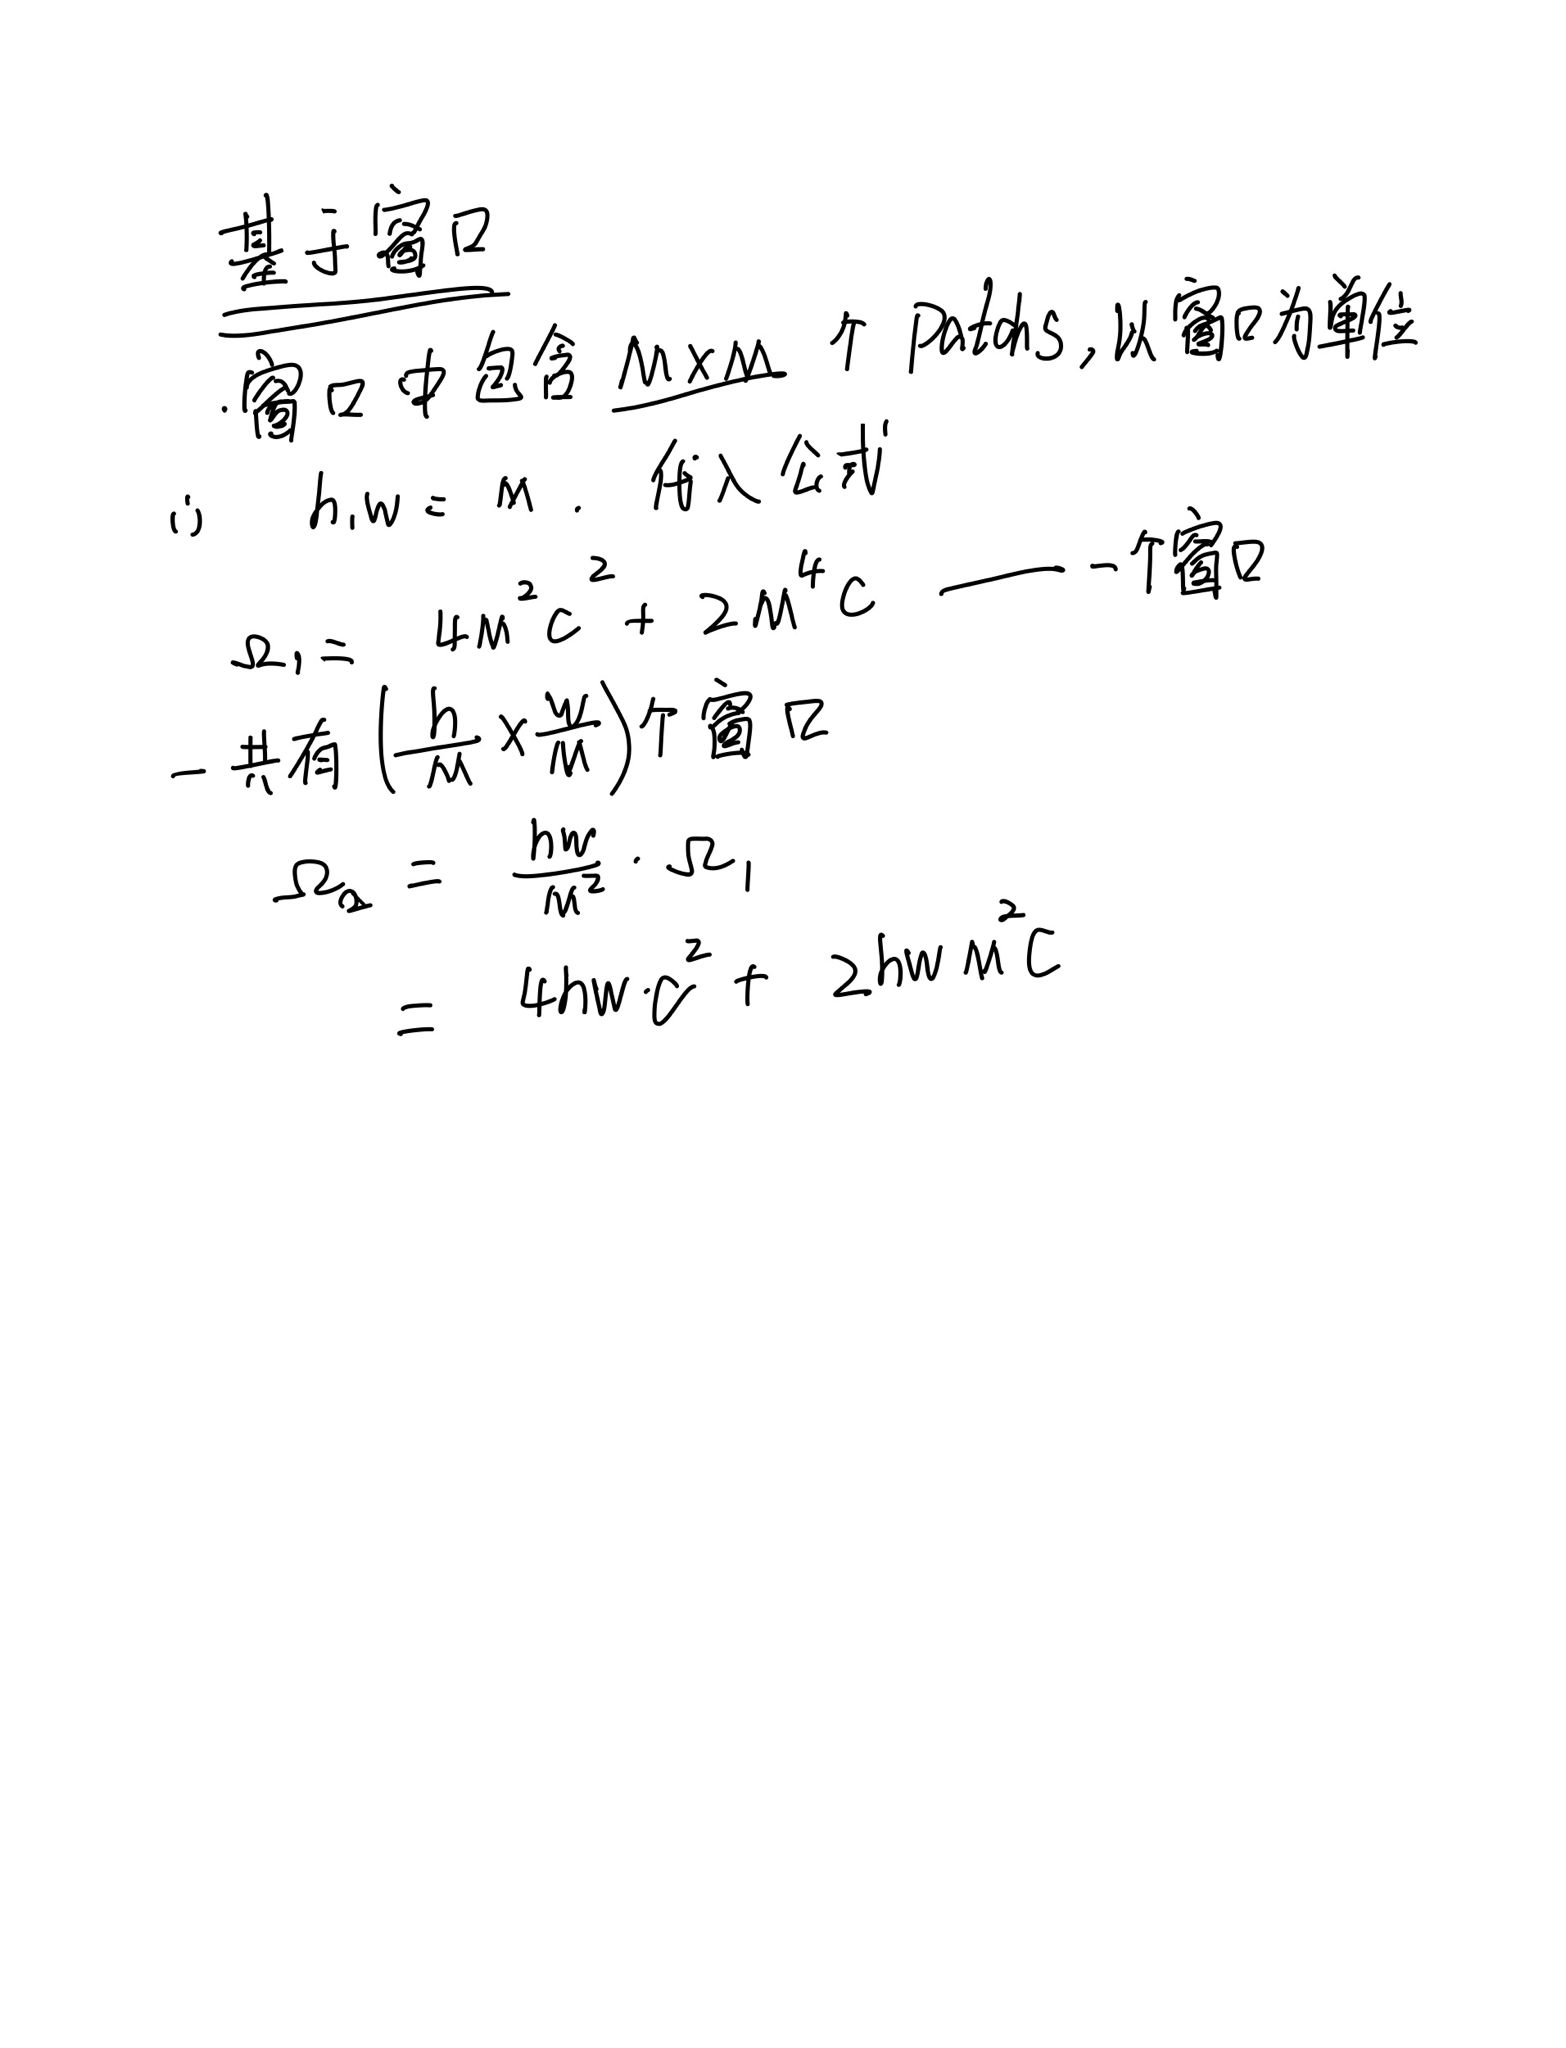 基于窗口
·窗口中包含 M×M 个 Patchs,以窗口为单位
(1) h,w = M. 代入公式
Ω₁ = 4M²C² + 2M⁴C —— 一个窗口
一共有 (h/M × w/M) 个窗口
Ω₂ = hw/M² · Ω₁
= 4hw·C² + 2hwM²C